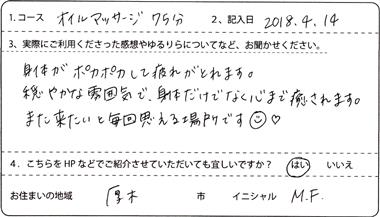 1.コース オイルマッサージ 75分 2、記入日 2018.4.14
3、実際にご利用くださった感想やゆるりらについてなど、お聞かせください。
身体がポカポカして疲れがとれます。
穏やかな雰囲気で、身体だけでなく心まで癒されます。
また来たいと毎回思える場所です☺♡
4．こちらをHPなどでご紹介させていただいても宜しいですか？ はい いいえ
お住まいの地域 厚木 市 イニシャル M.F.